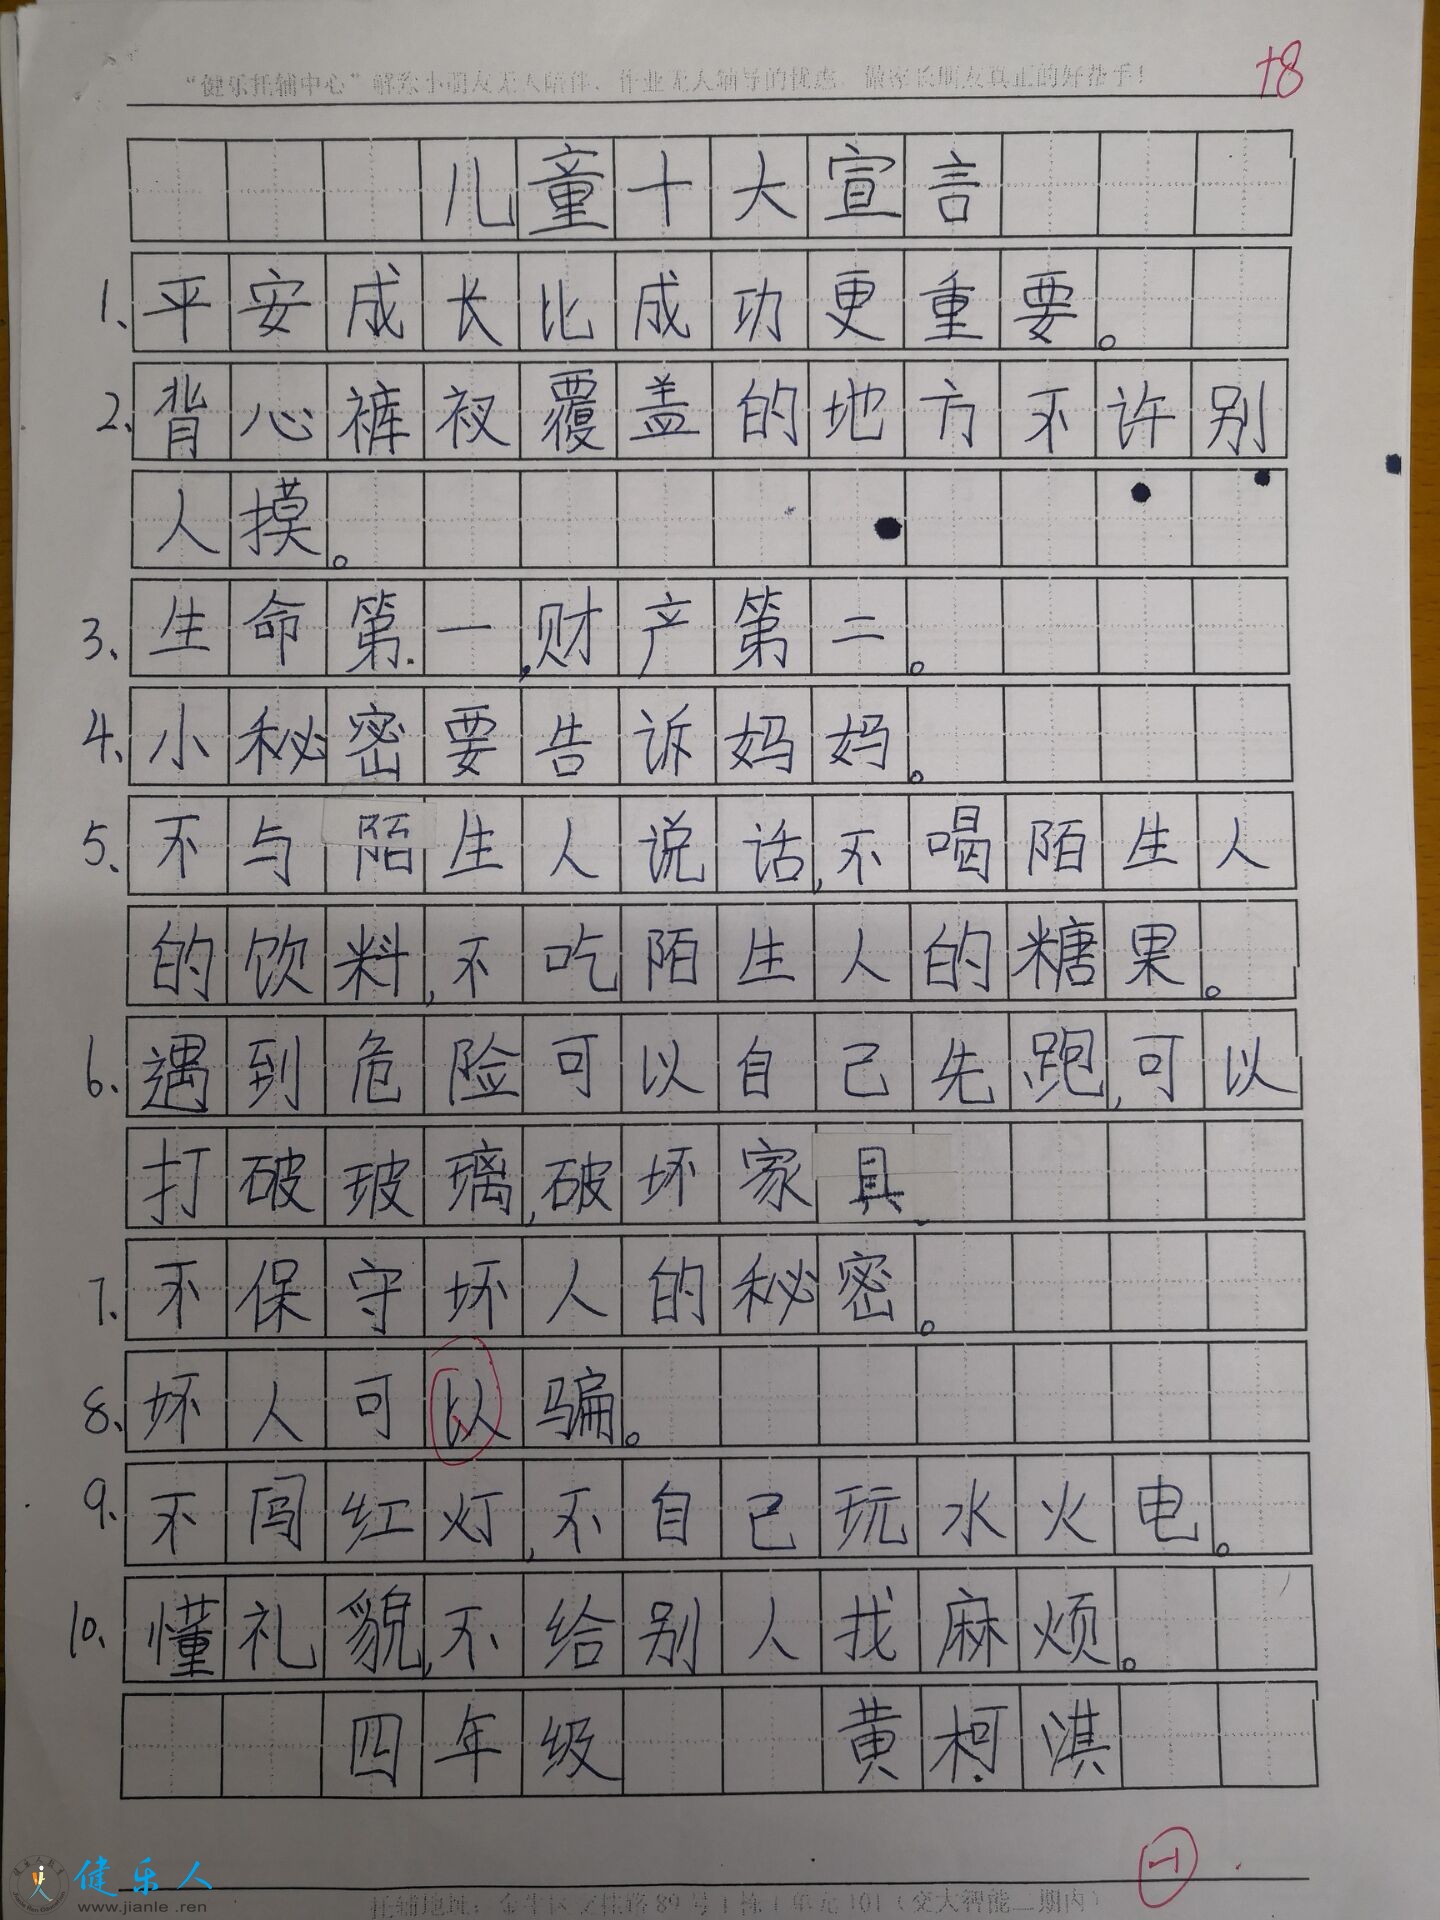 "健乐托辅中心"解除小朋友无人陪伴、作业无人辅导的忧虑，做家长朋友真正的好帮手！
+8
儿童十大宣言
1、平安成长比成功更重要。
2、背心裤衩覆盖的地方不许别
人摸。
3、生命第一,财产第二。
4、小秘密要告诉妈妈。
5、不与陌生人说话,不喝陌生人
的饮料,不吃陌生人的糖果。
6、遇到危险可以自己先跑,可以
打破玻璃,破坏家具
7、不保守坏人的秘密。
8、坏人可以骗。
9、不闯红灯,不自己玩水火电。
10、懂礼貌,不给别人找麻烦。
四年级 黄柯淇
-1
托辅地址：金牛区交桂路89号1栋1单元101（交大智能二期内）
健乐人
www.jianle.ren